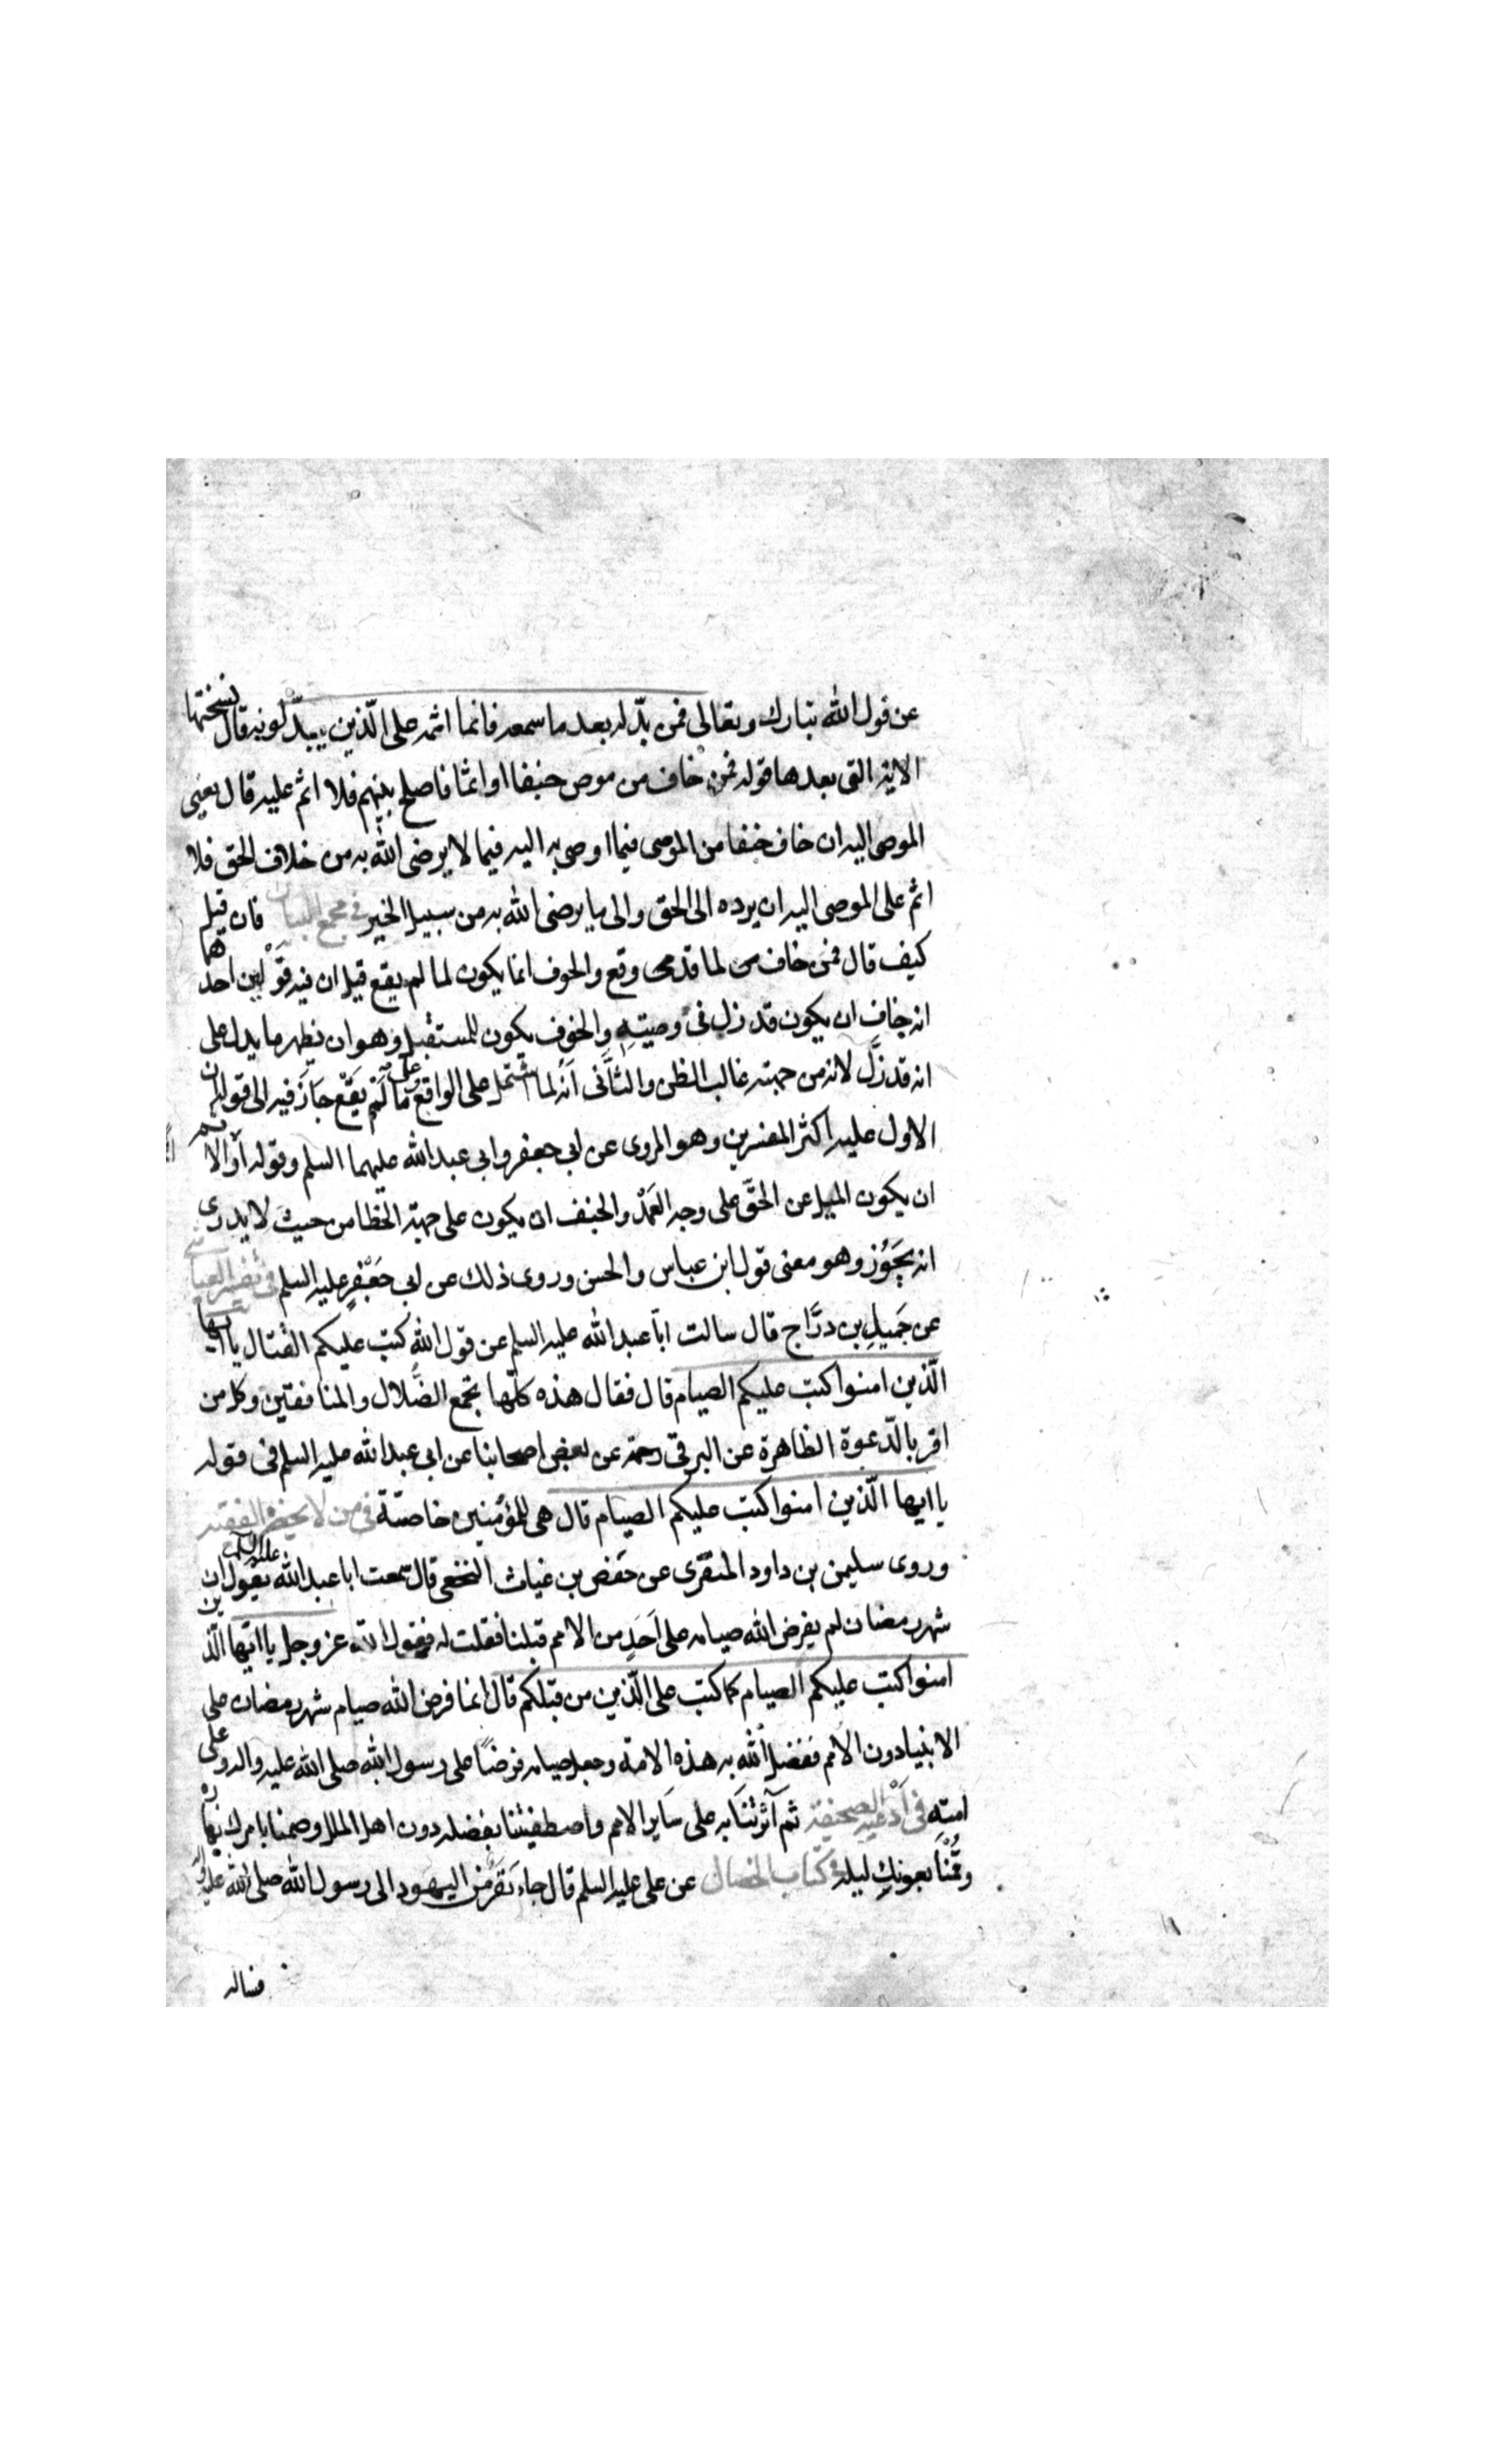 عن قول الله تبارك وتعالى فمن بدّله بعد ما سمعه فانما اثمه على الّذين يبدّلونه قال نسختها
الاية التى بعدها قوله فمن خاف من موص جنفا او اثما فاصلح بينهم فلا اثم عليه قال يعنى
الموصى اليه ان خاف جنفا من الموصى فيما اوصى به اليه فيما لا يرضى الله به من خلاف الحق فلا
اثم على الموصى اليه ان يرده الى الحق والى ما يرضى الله به من سبيل الخير فى مجمع البيان فان قيل
كيف قال فمن خاف لما قد وقع والخوف انما يكون لما لم يقع قيل ان فيه قولين احدهما
انه خاف ان يكون قد زل فى وصيته والخوف يكون للمستقبل وهو ان يظهر ما يدل على
انه قد زلّ لانه من جهته غالب الظن والثانى انه لما اشتمل على الواقع وعلى ما لم يقع جاز فيه الى قوله ان
الاول عليه اكثر المفسرين وهو المروى عن ابى جعفر وابى عبد الله عليهما السلم وقوله او الاثم
ان يكون الميل عن الحقّ على وجه العمد والجنف ان يكون على جهة الخطا من حيث لا يدرى
انه يجوز وهو معنى قول ابن عباس والحسن وروى ذلك عن ابى جعفر عليه السلم فى تفسير العياشى
عن جميل بن درّاج قال سالت ابا عبد الله عليه السلم عن قول الله كتب عليكم القتال يا ايها
الّذين امنوا كتب عليكم الصيام قال فقال هذه كلّها تجمع الضّلال والمنافقين وكل من
اقر بالدّعوة الظاهرة عن البرقى رحمه عن بعض اصحابنا عن ابى عبد الله عليه السلم فى قوله
يا ايها الّذين امنوا كتب عليكم الصيام قال هى للمؤمنين خاصّة فى من لا يحضره الفقيه
وروى سليمن بن داود المنقرى عن حفص بن غياث النخعى قال سمعت ابا عبد الله عليه السلم يقول ان
شهر رمضان لم يفرض الله صيامه على احد من الامم قبلنا فقلت له فقول الله عز وجل يا ايّها الّذين
امنوا كتب عليكم الصيام كما كتب على الّذين من قبلكم قال انما فرض الله صيام شهر رمضان على
الانبياء دون الامم ففضل الله به هذه الامة وجعل صيامه فرضًا على رسول الله صلى الله عليه واله وعلى
امته فى ادعية الصحيفة ثم آثرتنا به على ساير الامم واصطفيتنا بفضله دون اهل الملل وصمنا بامرك نهاره
وقُمْنا بعونك ليله فى كتاب الخصال عن على عليه السلم قال جاء نفر من اليهود الى رسول الله صلى الله عليه واله
فساله